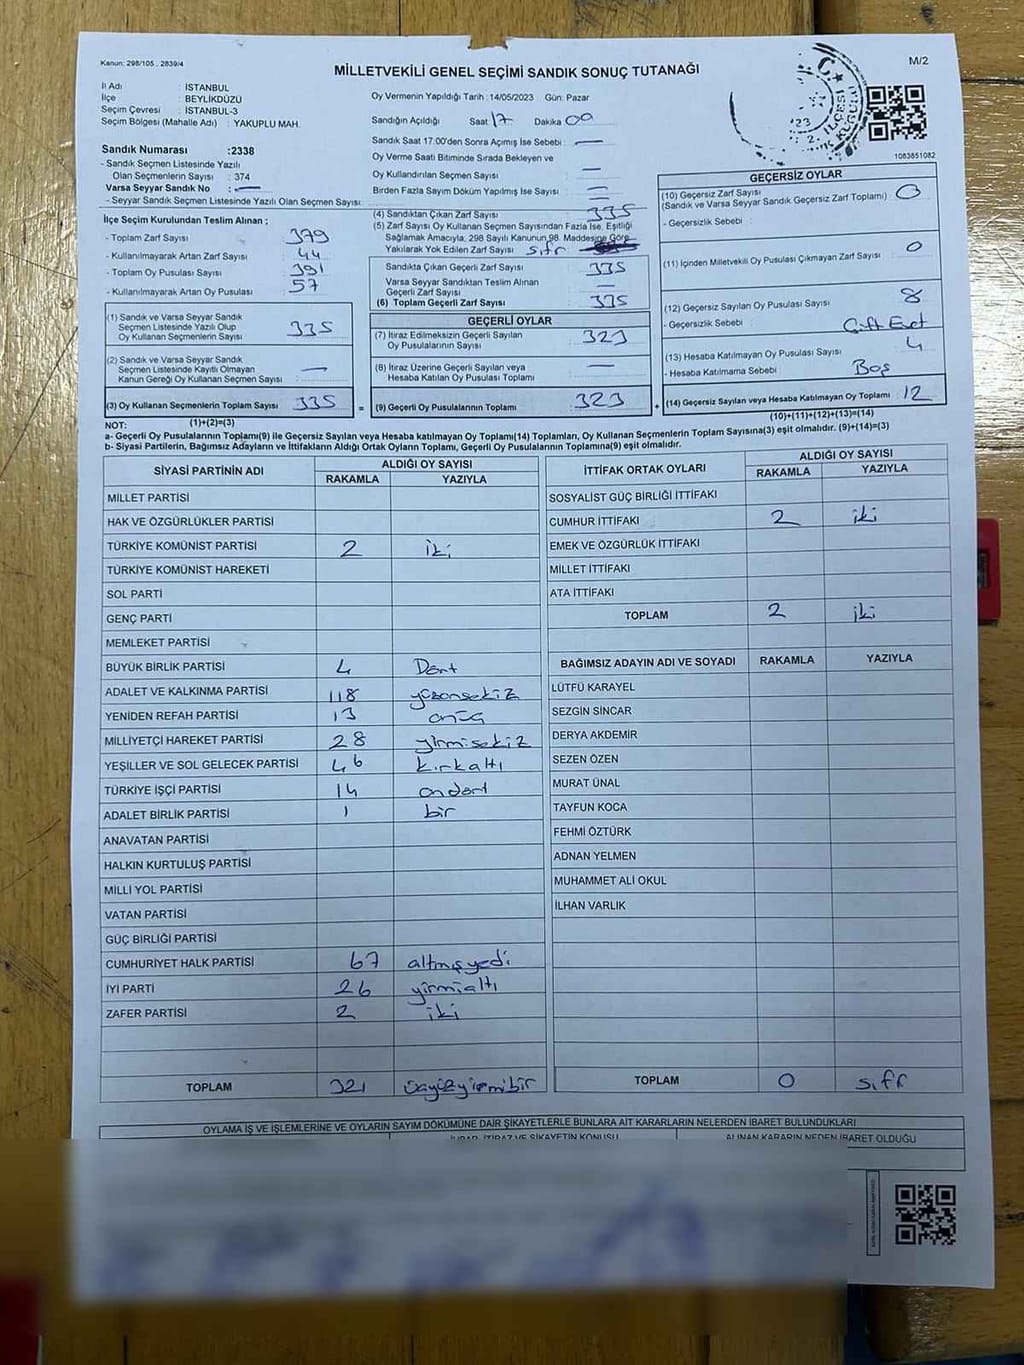 Kanun: 298/105 , 2839/4
MİLLETVEKİLİ GENEL SEÇİMİ SANDIK SONUÇ TUTANAĞI
M/2
İl Adı : İSTANBUL
İlçe : BEYLİKDÜZÜ
Seçim Çevresi : İSTANBUL-3
Seçim Bölgesi (Mahalle Adı) : YAKUPLU MAH.
Sandık Numarası :2338
- Sandık Seçmen Listesinde Yazılı
Olan Seçmenlerin Sayısı : 374
Varsa Seyyar Sandık No : —
- Seyyar Sandık Seçmen Listesinde Yazılı Olan Seçmen Sayısı:
Oy Vermenin Yapıldığı Tarih :14/05/2023 Gün: Pazar
Sandığın Açıldığı Saat 17 Dakika 00
Sandık Saat 17.00'den Sonra Açımış İse Sebebi : —
Oy Verme Saati Bitiminde Sırada Bekleyen ve
Oy Kullandırılan Seçmen Sayısı : —
Birden Fazla Sayım Döküm Yapılmış İse Sayısı : —
1083851082
İlçe Seçim Kurulundan Teslim Alınan ;
- Toplam Zarf Sayısı : 379
- Kullanılmayarak Artan Zarf Sayısı : 44
- Toplam Oy Pusulası Sayısı : 391
- Kullanılmayarak Artan Oy Pusulası : 57
(1) Sandık ve Varsa Seyyar Sandık
Seçmen Listesinde Yazılı Olup
Oy Kullanan Seçmenlerin Sayısı : 335
(2) Sandık ve Varsa Seyyar Sandık
Seçmen Listesinde Kayıtlı Olmayan
Kanun Gereği Oy Kullanan Seçmen Sayısı : —
(3) Oy Kullanan Seçmenlerin Toplam Sayısı : 335
(1)+(2)=(3)
(4) Sandıktan Çıkan Zarf Sayısı : 335
(5) Zarf Sayısı Oy Kullanan Seçmen Sayısından Fazla İse, Eşitliği
Sağlamak Amacıyla, 298 Sayılı Kanunun 98. Maddesine Göre
Yakılarak Yok Edilen Zarf Sayısı : sıfır
Sandıkta Çıkan Geçerli Zarf Sayısı : 335
Varsa Seyyar Sandıktan Teslim Alınan
Geçerli Zarf Sayısı : —
(6) Toplam Geçerli Zarf Sayısı : 335
GEÇERLİ OYLAR
(7) İtiraz Edilmeksizin Geçerli Sayılan
Oy Pusulalarının Sayısı : 323
(8) İtiraz Üzerine Geçerli Sayılan veya
Hesaba Katılan Oy Pusulası Toplamı : —
= (9) Geçerli Oy Pusulalarının Toplamı : 323
GEÇERSİZ OYLAR
(10) Geçersiz Zarf Sayısı : 0
(Sandık ve Varsa Seyyar Sandık Geçersiz Zarf Toplamı)
- Geçersizlik Sebebi :
(11) İçinden Milletvekili Oy Pusulası Çıkmayan Zarf Sayısı : 0
(12) Geçersiz Sayılan Oy Pusulası Sayısı : 8
- Geçersizlik Sebebi : Çift Evet
(13) Hesaba Katılmayan Oy Pusulası Sayısı : 4
- Hesaba Katılmama Sebebi : Boş
+ (14) Geçersiz Sayılan veya Hesaba Katılmayan Oy Toplamı : 12
(10)+(11)+(12)+(13)=(14)
NOT:
a- Geçerli Oy Pusulalarının Toplamı(9) ile Geçersiz Sayılan veya Hesaba katılmayan Oy Toplamı(14) Toplamları, Oy Kullanan Seçmenlerin Toplam Sayısına(3) eşit olmalıdır. (9)+(14)=(3)
b- Siyasi Partilerin, Bağımsız Adayların ve İttifakların Aldığı Ortak Oyların Toplamı, Geçerli Oy Pusulalarının Toplamına(9) eşit olmalıdır.
SİYASİ PARTİNİN ADI ALDIĞI OY SAYISI
RAKAMLA YAZIYLA
MİLLET PARTİSİ
HAK VE ÖZGÜRLÜKLER PARTİSİ
TÜRKİYE KOMÜNİST PARTİSİ 2 iki
TÜRKİYE KOMÜNİST HAREKETİ
SOL PARTİ
GENÇ PARTİ
MEMLEKET PARTİSİ
BÜYÜK BİRLİK PARTİSİ 4 Dört
ADALET VE KALKINMA PARTİSİ 118 yüzonsekiz
YENİDEN REFAH PARTİSİ 13 onüç
MİLLİYETÇİ HAREKET PARTİSİ 28 yirmisekiz
YEŞİLLER VE SOL GELECEK PARTİSİ 46 kırkaltı
TÜRKİYE İŞÇİ PARTİSİ 14 ondört
ADALET BİRLİK PARTİSİ 1 bir
ANAVATAN PARTİSİ
HALKIN KURTULUŞ PARTİSİ
MİLLİ YOL PARTİSİ
VATAN PARTİSİ
GÜÇ BİRLİĞİ PARTİSİ
CUMHURİYET HALK PARTİSİ 67 altmışyedi
İYİ PARTİ 26 yirmialtı
ZAFER PARTİSİ 2 iki
TOPLAM 321 üçyüzyirmibir
İTTİFAK ORTAK OYLARI ALDIĞI OY SAYISI
RAKAMLA YAZIYLA
SOSYALİST GÜÇ BİRLİĞİ İTTİFAKI
CUMHUR İTTİFAKI 2 iki
EMEK VE ÖZGÜRLÜK İTTİFAKI
MİLLET İTTİFAKI
ATA İTTİFAKI
TOPLAM 2 iki
BAĞIMSIZ ADAYIN ADI VE SOYADI RAKAMLA YAZIYLA
LÜTFÜ KARAYEL
SEZGİN SİNCAR
DERYA AKDEMİR
SEZEN ÖZEN
MURAT ÜNAL
TAYFUN KOCA
FEHMİ ÖZTÜRK
ADNAN YELMEN
MUHAMMET ALİ OKUL
İLHAN VARLIK
TOPLAM 0 sıfır
OYLAMA İŞ VE İŞLEMLERİNE VE OYLARIN SAYIM DÖKÜMÜNE DAİR ŞİKAYETLERLE BUNLARA AİT KARARLARIN NELERDEN İBARET BULUNDUKLARI
İHBAR, İTİRAZ VE ŞİKAYETİN KONUSU ALINAN KARARIN NEDEN İBARET OLDUĞU